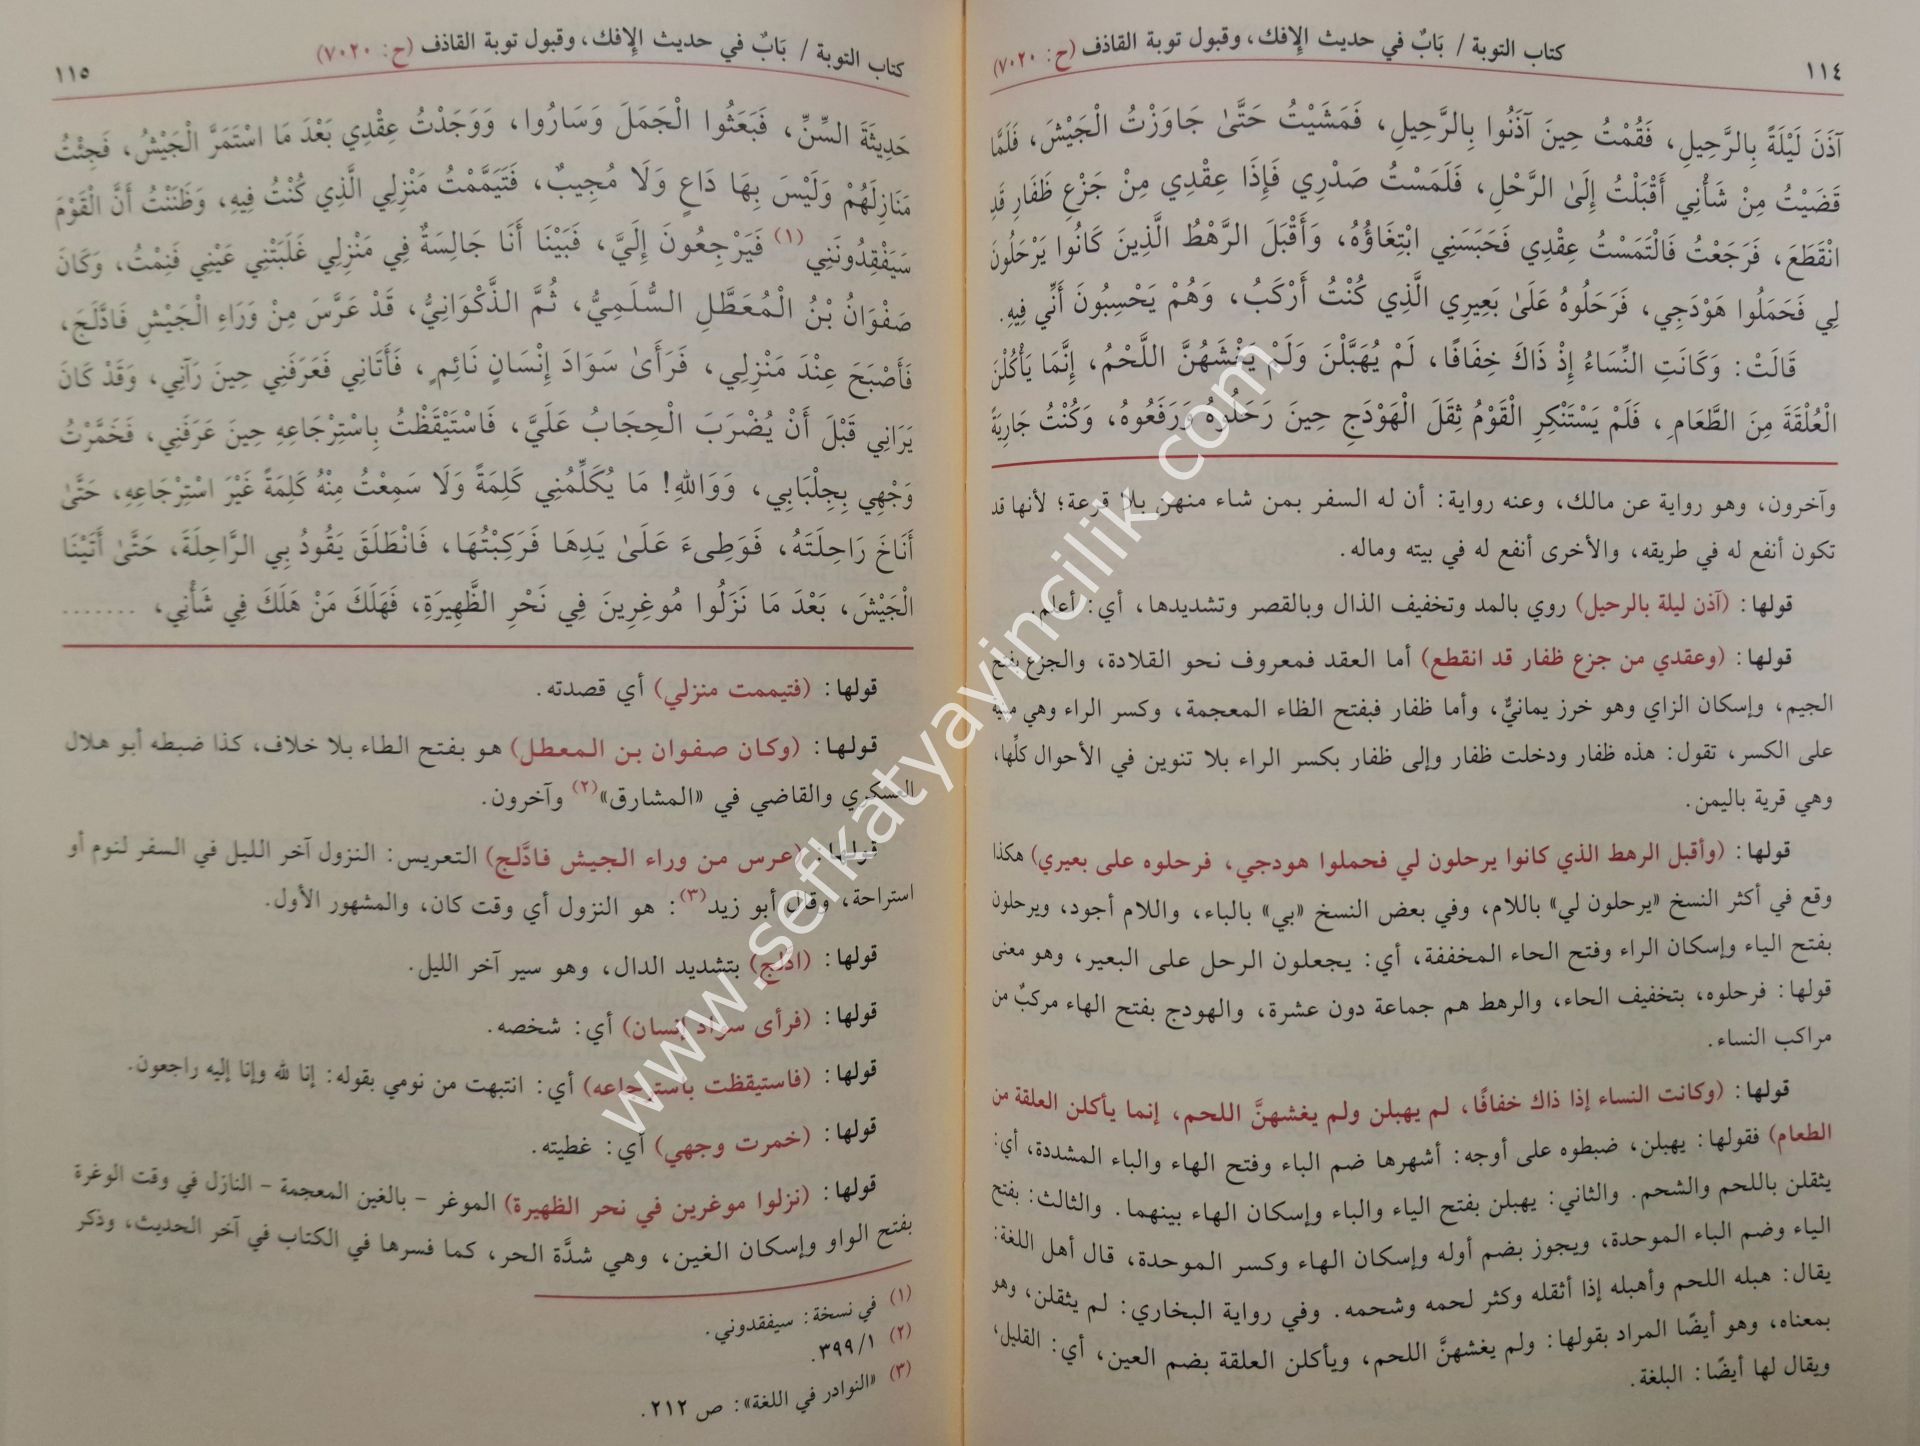 ١١٤
كتاب التوبة / بَابٌ في حديث الإفك، وقبول توبة القاذف (ح: ٧٠٢٠)
آذَنَ لَيْلَةً بِالرَّحِيلِ، فَقُمْتُ حِينَ آذَنُوا بِالرَّحِيلِ، فَمَشَيْتُ حَتَّىٰ جَاوَزْتُ الْجَيْشَ، فَلَمَّا
قَضَيْتُ مِنْ شَأْنِي أَقْبَلْتُ إِلَىٰ الرَّحْلِ، فَلَمَسْتُ صَدْرِي فَإِذَا عِقْدِي مِنْ جَزْعِ ظَفَارِ قَدِ
انْقَطَعَ، فَرَجَعْتُ فَالْتَمَسْتُ عِقْدِي فَحَبَسَنِي ابْتِغَاؤُهُ، وَأَقْبَلَ الرَّهْطُ الَّذِينَ كَانُوا يَرْحَلُونَ
لِي فَحَمَلُوا هَوْدَجِي، فَرَحَلُوهُ عَلَىٰ بَعِيرِي الَّذِي كُنْتُ أَرْكَبُ، وَهُمْ يَحْسِبُونَ أَنِّي فِيهِ.
قَالَتْ: وَكَانَتِ النِّسَاءُ إِذْ ذَاكَ خِفَافًا، لَمْ يُهَبَّلْنَ وَلَمْ يَغْشَهُنَّ اللَّحْمُ، إِنَّمَا يَأْكُلْنَ
الْعُلْقَةَ مِنَ الطَّعَامِ، فَلَمْ يَسْتَنْكِرِ الْقَوْمُ ثِقَلَ الْهَوْدَجِ حِينَ رَحَلُوهُ وَرَفَعُوهُ، وَكُنْتُ جَارِيَةً
وآخرون، وهو رواية عن مالك، وعنه رواية: أن له السفر بمن شاء منهن بلا قرعة؛ لأنها قد
تكون أنفع له في طريقه، والأخرى أنفع له في بيته وماله.
قولها: (آذن ليلة بالرحيل) روي بالمد وتخفيف الذال وبالقصر وتشديدها، أي: أعلم.
قولها: (وعقدي من جزع ظفار قد انقطع) أما العقد فمعروف نحو القلادة، والجزع بفتح
الجيم، وإسكان الزاي وهو خرز يمانيٌّ، وأما ظفار فبفتح الظاء المعجمة، وكسر الراء وهي مبنية
على الكسر، تقول: هذه ظفار ودخلت ظفار وإلى ظفار بكسر الراء بلا تنوين في الأحوال كلِّها،
وهي قرية باليمن.
قولها: (وأقبل الرهط الذي كانوا يرحلون لي فحملوا هودجي، فرحلوه على بعيري) هكذا
وقع في أكثر النسخ «يرحلون لي» باللام، وفي بعض النسخ «بي» بالباء، واللام أجود، ويرحلون
بفتح الياء وإسكان الراء وفتح الحاء المخففة، أي: يجعلون الرحل على البعير، وهو معنى
قولها: فرحلوه، بتخفيف الحاء، والرهط هم جماعة دون عشرة، والهودج بفتح الهاء مركبٌ من
مراكب النساء.
قولها: (وكانت النساء إذا ذاك خفافًا، لم يهبلن ولم يغشهنَّ اللحم، إنما يأكلن العلقة من
الطعام) فقولها: يهبلن، ضبطوه على أوجه: أشهرها ضم الياء وفتح الهاء والباء المشددة، أي:
يثقلن باللحم والشحم. والثاني: يهبلن بفتح الياء والباء وإسكان الهاء بينهما. والثالث: بفتح
الياء وضم الباء الموحدة، ويجوز بضم أوله وإسكان الهاء وكسر الموحدة، قال أهل اللغة:
يقال: هبله اللحم وأهبله إذا أثقله وكثر لحمه وشحمه. وفي رواية البخاري: لم يثقلن، وهو
بمعناه، وهو أيضًا المراد بقولها: ولم يغشهنَّ اللحم، ويأكلن العلقة بضم العين، أي: القليل،
ويقال لها أيضًا: البلغة.
كتاب التوبة / بَابٌ في حديث الإفك، وقبول توبة القاذف (ح: ٧٠٢٠)
١١٥
حَدِيثَةَ السِّنِّ، فَبَعَثُوا الْجَمَلَ وَسَارُوا، وَوَجَدْتُ عِقْدِي بَعْدَ مَا اسْتَمَرَّ الْجَيْشُ، فَجِئْتُ
مَنَازِلَهُمْ وَلَيْسَ بِهَا دَاعٍ وَلَا مُجِيبٌ، فَتَيَمَّمْتُ مَنْزِلِي الَّذِي كُنْتُ فِيهِ، وَظَنَنْتُ أَنَّ الْقَوْمَ
سَيَفْقِدُونَنِي (١) فَيَرْجِعُونَ إِلَيَّ، فَبَيْنَا أَنَا جَالِسَةٌ فِي مَنْزِلِي غَلَبَتْنِي عَيْنِي فَنِمْتُ، وَكَانَ
صَفْوَانُ بْنُ الْمُعَطَّلِ السُّلَمِيُّ، ثُمَّ الذَّكْوَانِيُّ، قَدْ عَرَّسَ مِنْ وَرَاءِ الْجَيْشِ فَادَّلَجَ،
فَأَصْبَحَ عِنْدَ مَنْزِلِي، فَرَأَىٰ سَوَادَ إِنْسَانٍ نَائِمٍ، فَأَتَانِي فَعَرَفَنِي حِينَ رَآنِي، وَقَدْ كَانَ
يَرَانِي قَبْلَ أَنْ يُضْرَبَ الْحِجَابُ عَلَيَّ، فَاسْتَيْقَظْتُ بِاسْتِرْجَاعِهِ حِينَ عَرَفَنِي، فَخَمَّرْتُ
وَجْهِي بِجِلْبَابِي، وَوَاللهِ! مَا يُكَلِّمُنِي كَلِمَةً وَلَا سَمِعْتُ مِنْهُ كَلِمَةً غَيْرَ اسْتِرْجَاعِهِ، حَتَّىٰ
أَنَاخَ رَاحِلَتَهُ، فَوَطِىءَ عَلَىٰ يَدِهَا فَرَكِبْتُهَا، فَانْطَلَقَ يَقُودُ بِي الرَّاحِلَةَ، حَتَّىٰ أَتَيْنَا
الْجَيْشَ، بَعْدَ مَا نَزَلُوا مُوغِرِينَ فِي نَحْرِ الظَّهِيرَةِ، فَهَلَكَ مَنْ هَلَكَ فِي شَأْنِي، .......
قولها: (فتيممت منزلي) أي قصدته.
قولها: (وكان صفوان بن المعطل) هو بفتح الطاء بلا خلاف، كذا ضبطه أبو هلال
العسكري والقاضي في «المشارق»(٢) وآخرون.
قولها: (عرس من وراء الجيش فادَّلج) التعريس: النزول آخر الليل في السفر لنوم أو
استراحة، وقال أبو زيد(٣): هو النزول أي وقت كان، والمشهور الأول.
قولها: (ادلج) بتشديد الدال، وهو سير آخر الليل.
قولها: (فرأى سواد إنسان) أي: شخصه.
قولها: (فاستيقظت باسترجاعه) أي: انتبهت من نومي بقوله: إنا لله وإنا إليه راجعون.
قولها: (خمرت وجهي) أي: غطيته.
قولها: (نزلوا موغرين في نحر الظهيرة) الموغر - بالغين المعجمة - النازل في وقت الوغرة
بفتح الواو وإسكان الغين، وهي شدَّة الحر، كما فسرها في الكتاب في آخر الحديث، وذكر
(١) في نسخة: سيفقدوني.
(٢) ٣٩٩/١.
(٣) «النوادر في اللغة»: ص ٢١٢.
www.sefkatyayincilik.com